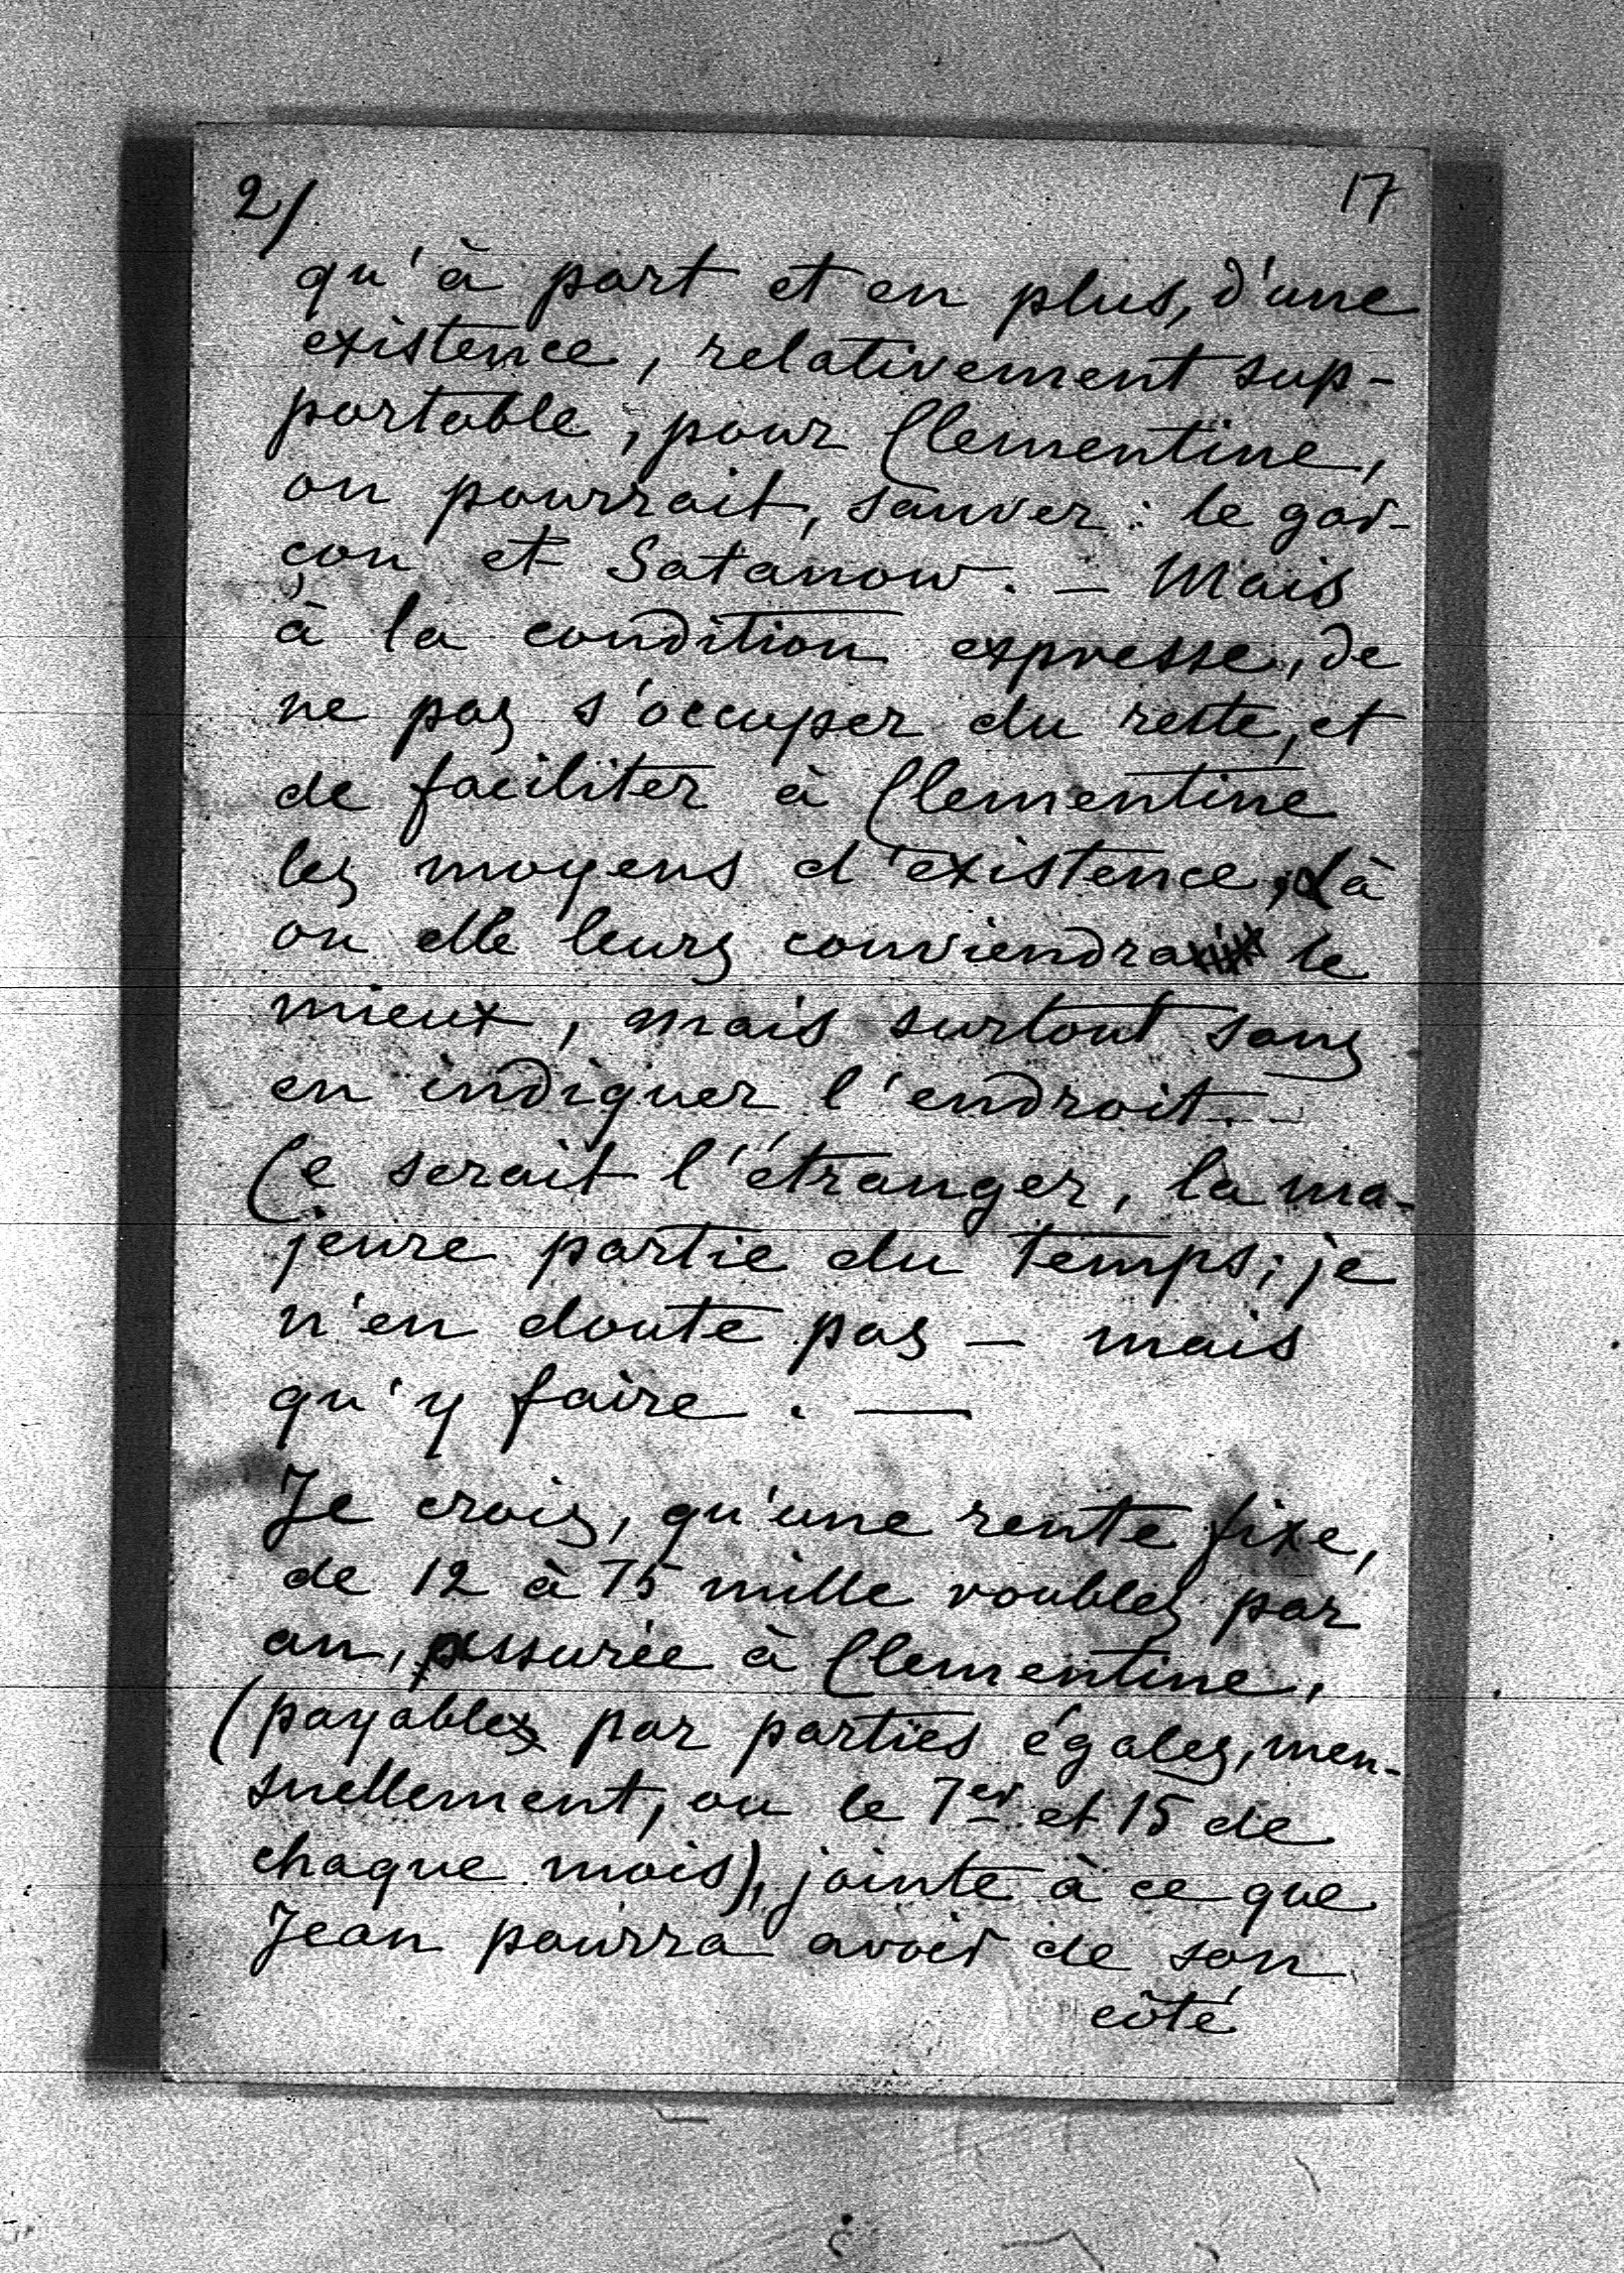 2/
17
qu'à part et en plus, d'une
existence, relativement sup-
portable, pour Clementine,
on pourrait, sauver: le gar-
çon et Satanow. — Mais
à la condition expresse, de
ne pas s'occuper du reste, et
de faciliter à Clementine
les moyens d'existence, là
ou elle leurs conviendra le
mieux, mais surtout sans
en indiquer l'endroit. -
Ce serait l'étranger, la ma-
jeure partie du temps; je
n'en doute pas — mais
qu'y faire. —
Je crois, qu'une rente fixe,
de 12 à 15 mille roubles par
an, assurée à Clementine,
(payable par parties égales, men-
suellement, ou le 1er et 15 de
chaque mois), jointe à ce que
Jean pourra avoir de son
côté